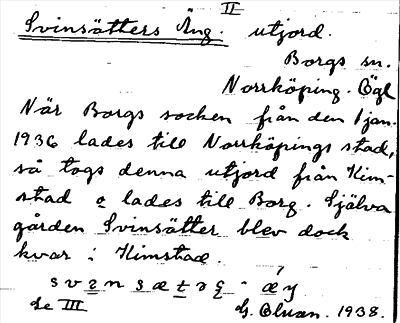 II
Svinsätters Äng. utjord.
Borgs sn.
Norrköping. Ögl
När Borgs socken från den 1 jan.
1936 lades till Norrköpings stad,
så togs denna utjord från Kim-
stad o lades till Borg. Själva
gården Svinsätter blev dock
kvar i Kimstad.
Se III
1938.